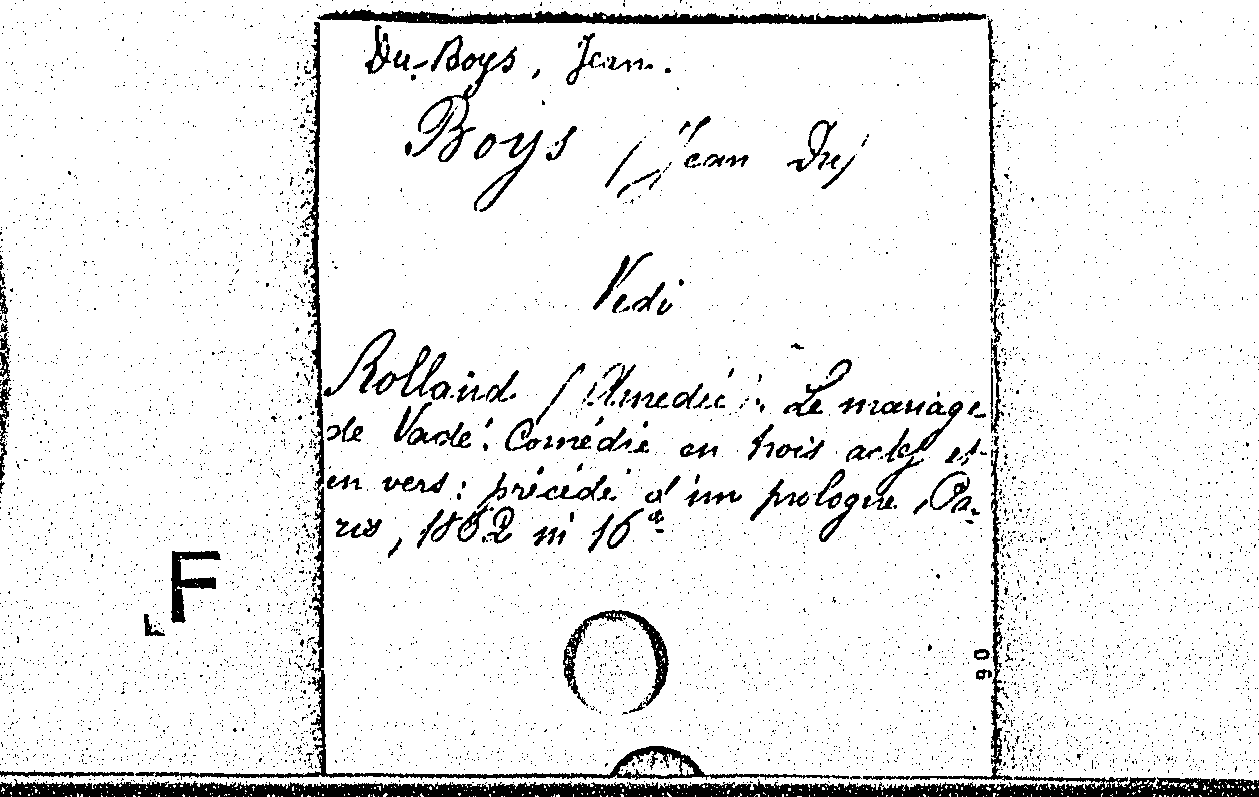 Du-Boys, Jean.
Boys (Jean Du)
Vedi
Rolland (Amedée). Le mariage
de Vadé. Comédie en trois actes et
en vers: précédé d'un prologue, Pa-
ris, 1862 in 16°
F
90